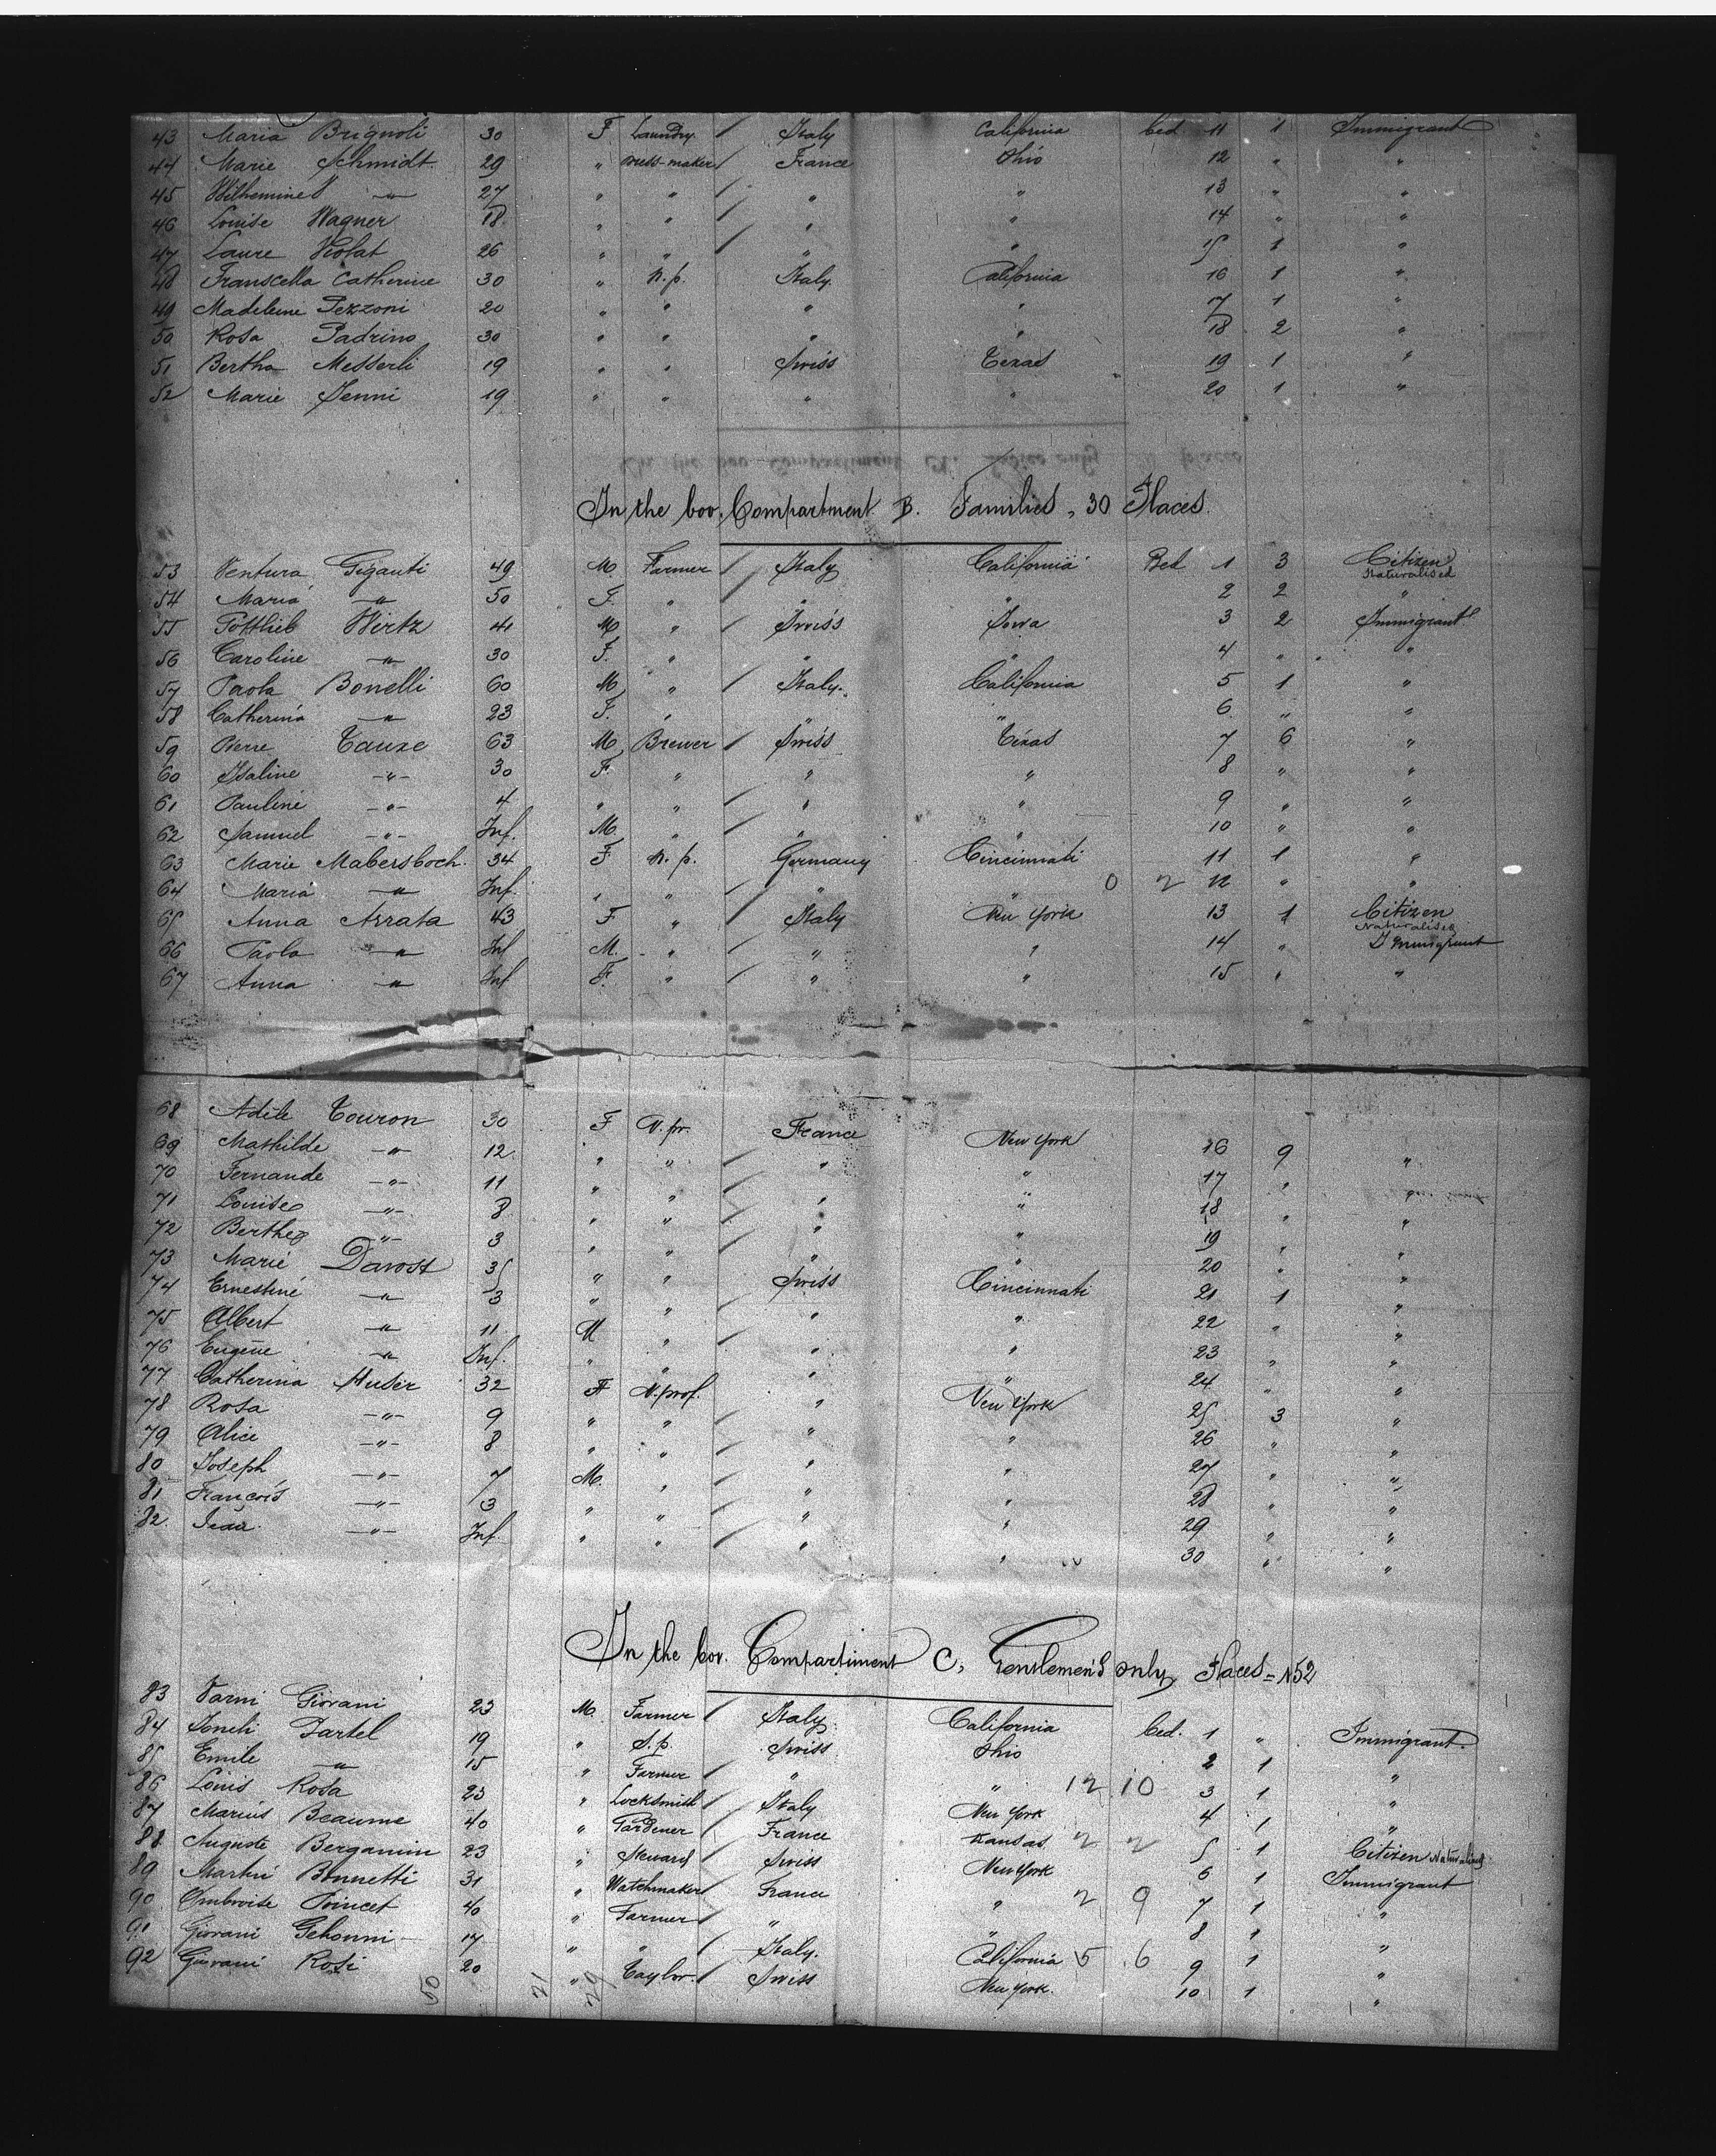 43 Maria Brignoli 30 F Laundry / Italy California bed 11 1 Immigrant
44 Marie Schmidt 29 " Dress-maker / France Ohio 12 " "
45 Wilhemine -"- 27 " " / " " 13 " "
46 Louise Wagner 18 " " / " " 14 " "
47 Laure Violat 26 " " / " " 15 1 "
48 Franscella Catherine 30 " N.p. Italy California 16 1 "
49 Madeleine Pezzoni 20 " " " " 7 1 "
50 Rosa Padrino 30 " " " " 18 2 "
51 Bertha Messerli 19 " " Swiss Texas 19 1 "
52 Marie Jenni 19 " " " " 20 1 "
In the bov. Compartment B. Families, 30 Places.
53 Ventura Giganti 49 M. Farmer / Italy California Bed 1 3 Citizen
Naturalised
54 Maria -"- 50 F. " / " " 2 2 "
55 Gottlieb Wirtz 41 M " / Swiss Iowa 3 2 Immigrant
56 Caroline -"- 30 F. " / " " 4 " "
57 Paola Bonelli 60 M " / Italy. California 5 1 "
58 Catherina -"- 23 F. " / " " 6 " "
59 Pierre Tauxe 63 M Brewer / Swiss Texas 7 6 "
60 Isaline -"- 30 F " / " " 8 " "
61 Pauline -"- 4 " " / " " 9 " "
62 Samuel -"- Inf. M. " / " " 10 " "
63 Marie Mabersboch 34 F N.p. / Germany Cincinnati 11 1 "
64 Maria -"- Inf. " " / " " 0 2 12 " "
65 Anna Arrata 43 F. " / Italy New York 13 1 Citizen
Naturalised
66 Paola -"- Inf M. " / " " 14 " Immigrant
67 Anna -"- Inf F. " / " " 15 " "
68 Adèle Touron 30 F N.pr. France New York 16 9 "
69 Mathilde -"- 12 " " / " " 17 " "
70 Fernande -"- 11 " " / " " 18 " "
71 Louise -"- 8 " " / " " 19 " "
72 Berthe -"- 3 " " / " " 20 " "
73 Marie Davost 35 " " / Swiss Cincinnati 21 1 "
74 Ernestine -"- 3 " " / " " 22 " "
75 Albert -"- 11 M " / " " 23 " "
76 Eugène -"- Inf. " " / " " 24 " "
77 Catherina Huser 32 F N.prof. / " New York 25 3 "
78 Rosa -"- 9 " " / " " 26 " "
79 Alice -"- 8 " " / " " 27 " "
80 Joseph -"- 7 M. " / " " 28 " "
81 Francois -"- 3 " " / " " 29 " "
82 Jean -"- Inf " " / " " 30 " "
In the bov. Compartiment C, Gentlemen's only, Places = 152
83 Varni Giovani 23 M. Farmer / Italy California bed. 1 " Immigrant
84 Jartel 19 " S.p. Swiss Ohio 2 1 "
85 Emile -"- 15 " Farmer " " 12 10 3 1 "
86 Louis Rosa 23 " Locksmith / Italy New York 4 1 "
87 Marius Beaume 40 " Gardener France Kansas 2 2 5 1 Citizen Naturalised
88 Auguste Bergamin 23 " Steward Swiss New York 6 1 Immigrant
89 Martin Bonnetti 31 " Watchmaker / France " 2 9 7 1 "
90 Ambroise Poincet 40 " Farmer / " " 8 " "
91 Giovani Gehonni 17 " " / Italy. California 5 6 9 1 "
92 Giovani Rosi 20 " Taylor / Swiss New York. 10 1 "
50 21 29